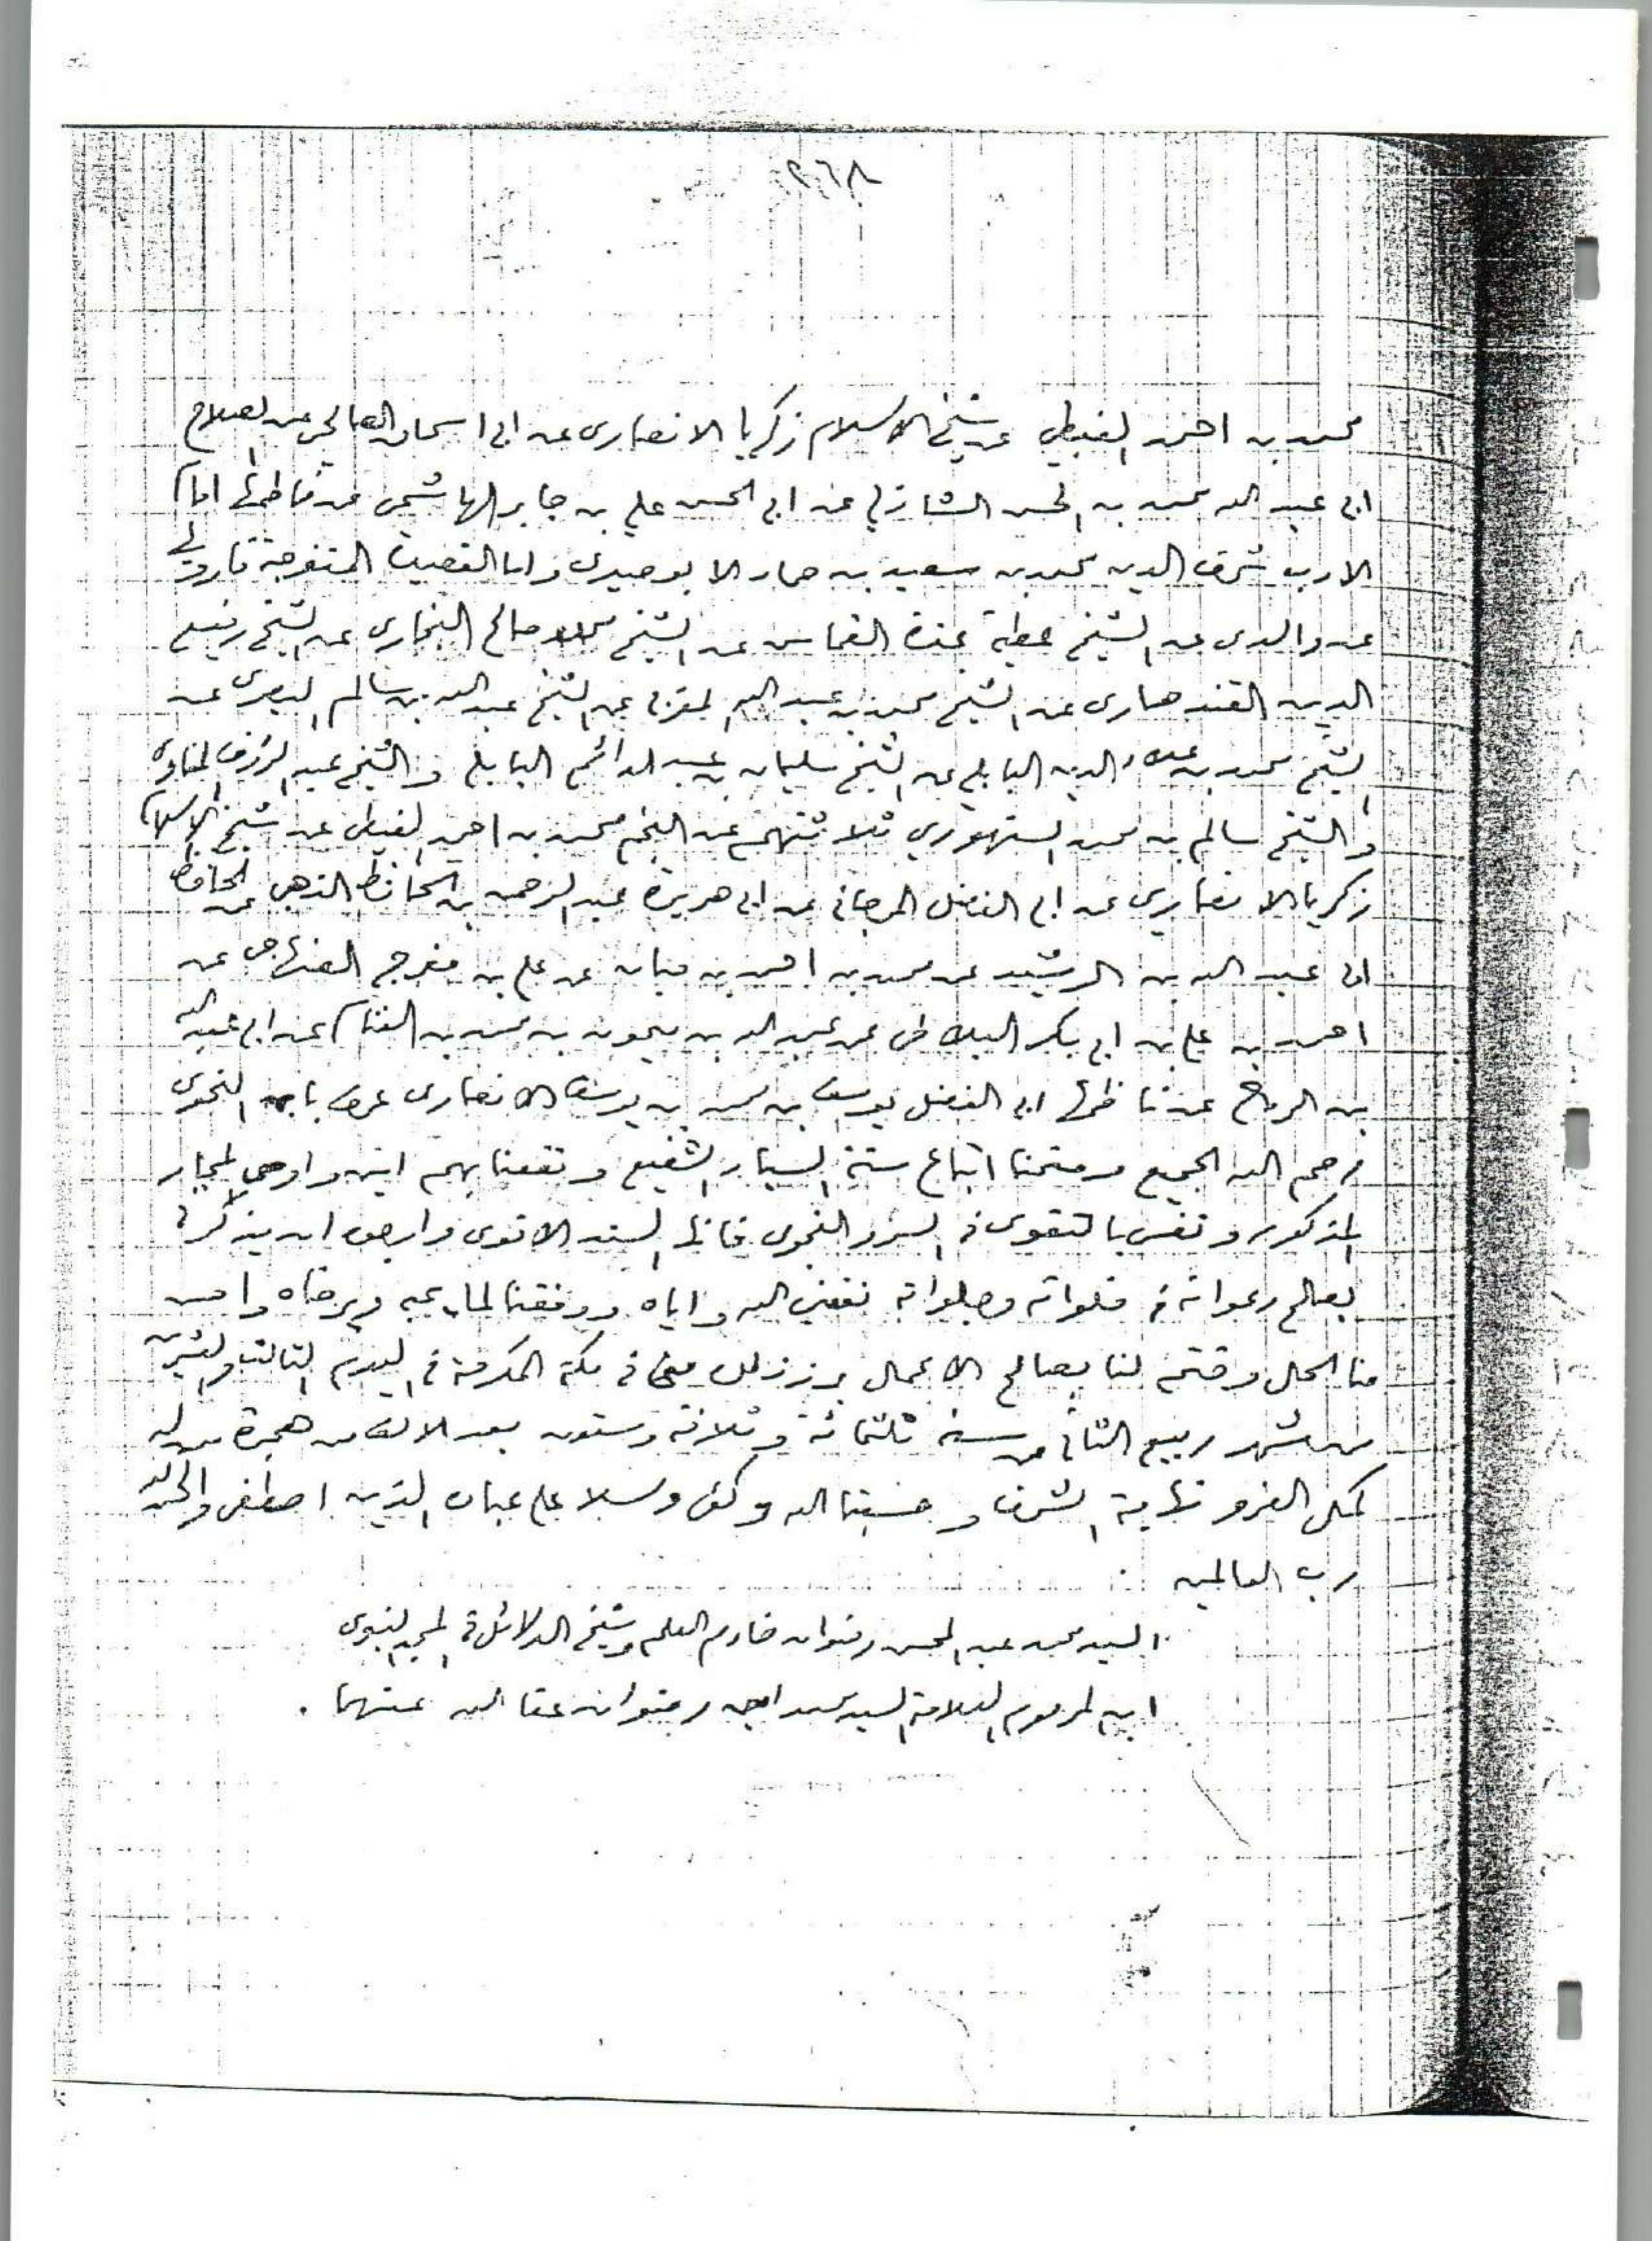 ٢٦٨
محمد بن احمد الغيطي عن شيخ الاسلام زكريا الانصارى عن ابى اسحاق الصالحى عن الصلاح
ابى عبد الله محمد بن الحسن الشاذلي عن ابى الحسن علي بن جابر الهاشمي عن ناظمها امام
الادب شرف الدين محمد بن سعيد بن حماد الابوصيرى واما القصيدة المنفرجة فارويها
عن والدى عن الشيخ عطية غندة القماس عن الشيخ صالح البخارى عن الشيخ رفيع
الدين القندهارى عن الشيخ محمد بن عبد الله المغربى عن الشيخ عبد الله بن سالم البصرى عن
الشيخ محمد بن علاء الدين البابلي عن الشيخ سليمان بن عبد الدائم البابلي والشيخ عبد الرؤوف المناوى
والشيخ سالم بن محمد السنهوري ثلاثتهم عن النجم محمد بن احمد الغيطى عن شيخ الاسلام
زكريا الانصاري عن ابى الفضل المرجانى عن ابى هريرة عبد الرحمن بن الحافظ الذهبى عن الحافظ
ابى عبد الله بن الرشيد عن محمد بن احمد بن حيان عن علي بن مفرج الصنهاجى عن
احمد بن علي بن ابى بكر البلاطى عن عبد الله بن ميمون بن محمد بن عن ابى عبد الله
بن الرماح عن ناظمها ابى الفضل يوسف بن محمد بن يوسف الانصارى عرف بابن النحوى
رحم الله الجميع ومنحنا اتباع سنة الشفيع ونفعنا بهم امين واوصى المجاز
المذكور ونفسى بالتقوى فى السر والنجوى فانها السند الاقوى وارجو ان يذكرنى
بصالح دعواته فى خلواته وجلواته نفعنى الله واياه ووفقنا لما يحبه ويرضاه واحسن
منا الحال وختم لنا بصالح الاعمال برز ذلك منى فى مكة المكرمة فى اليوم الثالث والعشرين
من شهر ربيع الثانى من سنة ثلثمائة وثلاثة وستون بعد الالف من هجرة من له
كمال العز ونهاية الشرف وحسبنا الله وكفى وسلام على عباده الذين اصطفى والحمد لله
رب العالمين
السيد محمد عبد المحسن رضوان خادم العلم وشيخ الدلائل فى المسجد النبوى
ابن المرحوم العلامة السيد محمد امين رضوان عفا الله عنهما .